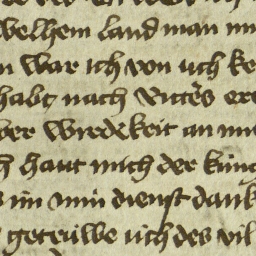 welhem land man
n war ich von üch
habt nach Ritters
ber wirdekeit an
haut mich der küng
im min dienst dank
getrüwe üch des vil